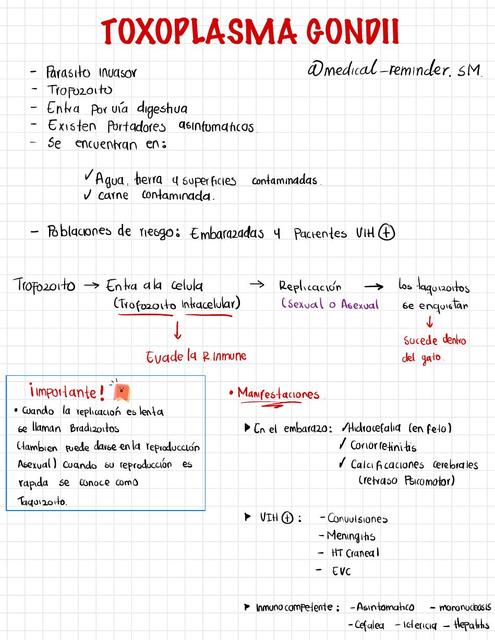 TOXOPLASMA GONDII
@medical-reminder.SM
- Parasito invasor
- Trofozoito
- Entra por vía digestiva
- Existen Portadores asintomaticos
- Se encuentran en:
✓ Agua, tierra y superficies contaminadas.
✓ carne contaminada.
- Poblaciones de riesgo: Embarazadas y Pacientes VIH +
Trofozoito → Entra a la celula → Replicación → los taquizoitos
(Trofozoito intracelular) (Sexual o Asexual se enquistar
↓ ↓
Evade la R. inmune
Sucede dentro
del gato.
¡importante!
• Cuando la replicación es lenta
se llaman Bradizoitos
(tambien puede darse en la reproducción
Asexual) Cuando su reproducción es
rapida se conoce como
Taquizoito.
• Manifestaciones
▶ En el embarazo: ✓Hidrocefalia (en feto)
✓ Coriorretinitis
✓ Calcificaciones cerebrales
(retraso Psicomotor)
▶ VIH +: - Convulsiones
- Meningitis
- HT Craneal
- EVC
▶ Inmunocompetente: - Asintomatico - mononucleosis
- Cefalea - Ictericia - Hepatitis